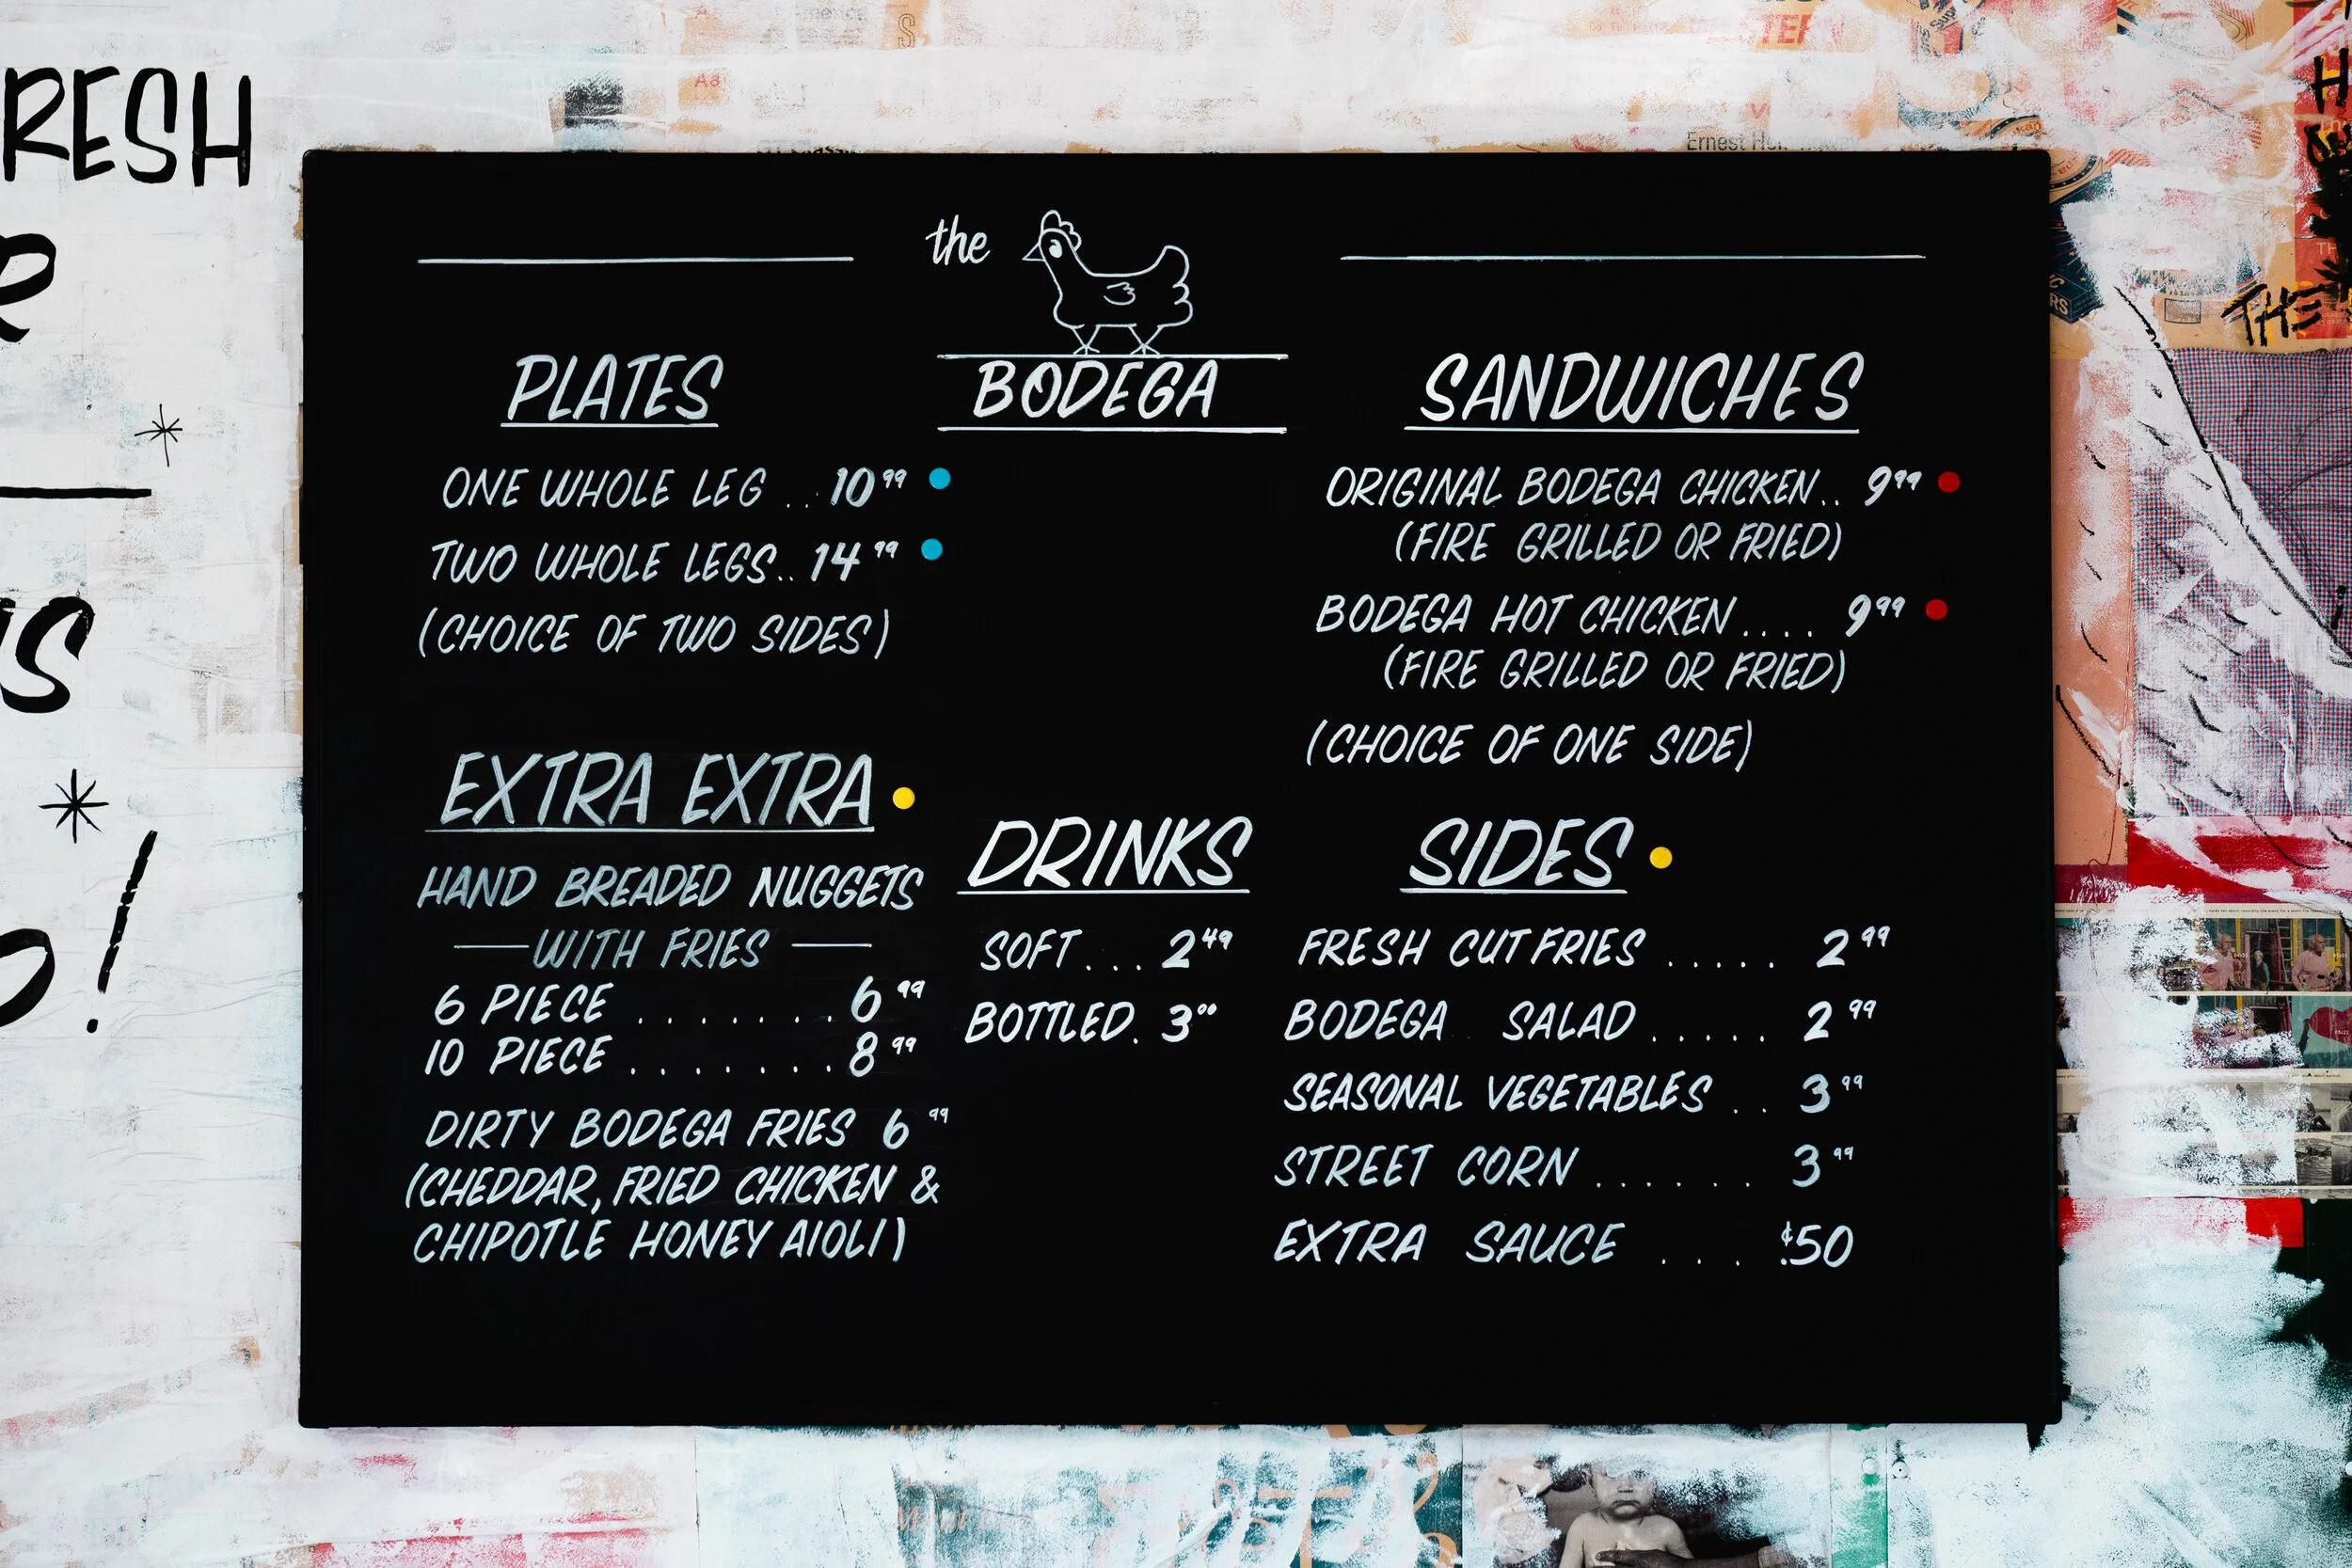 RESH
the
BODEGA
PLATES
ONE WHOLE LEG .. 10 99
TWO WHOLE LEGS.. 14 99
(CHOICE OF TWO SIDES)
EXTRA EXTRA
HAND BREADED NUGGETS
WITH FRIES
6 PIECE ........ 6 99
10 PIECE ........ 8 99
DIRTY BODEGA FRIES 6 99
(CHEDDAR, FRIED CHICKEN &
CHIPOTLE HONEY AIOLI)
DRINKS
SOFT... 2 49
BOTTLED. 3 00
SANDWICHES
ORIGINAL BODEGA CHICKEN.. 9 99
(FIRE GRILLED OR FRIED)
BODEGA HOT CHICKEN.... 9 99
(FIRE GRILLED OR FRIED)
(CHOICE OF ONE SIDE)
SIDES
FRESH CUT FRIES ..... 2 99
BODEGA SALAD ..... 2 99
SEASONAL VEGETABLES .. 3 99
STREET CORN ...... 3 99
EXTRA SAUCE ... ¢.50
THE